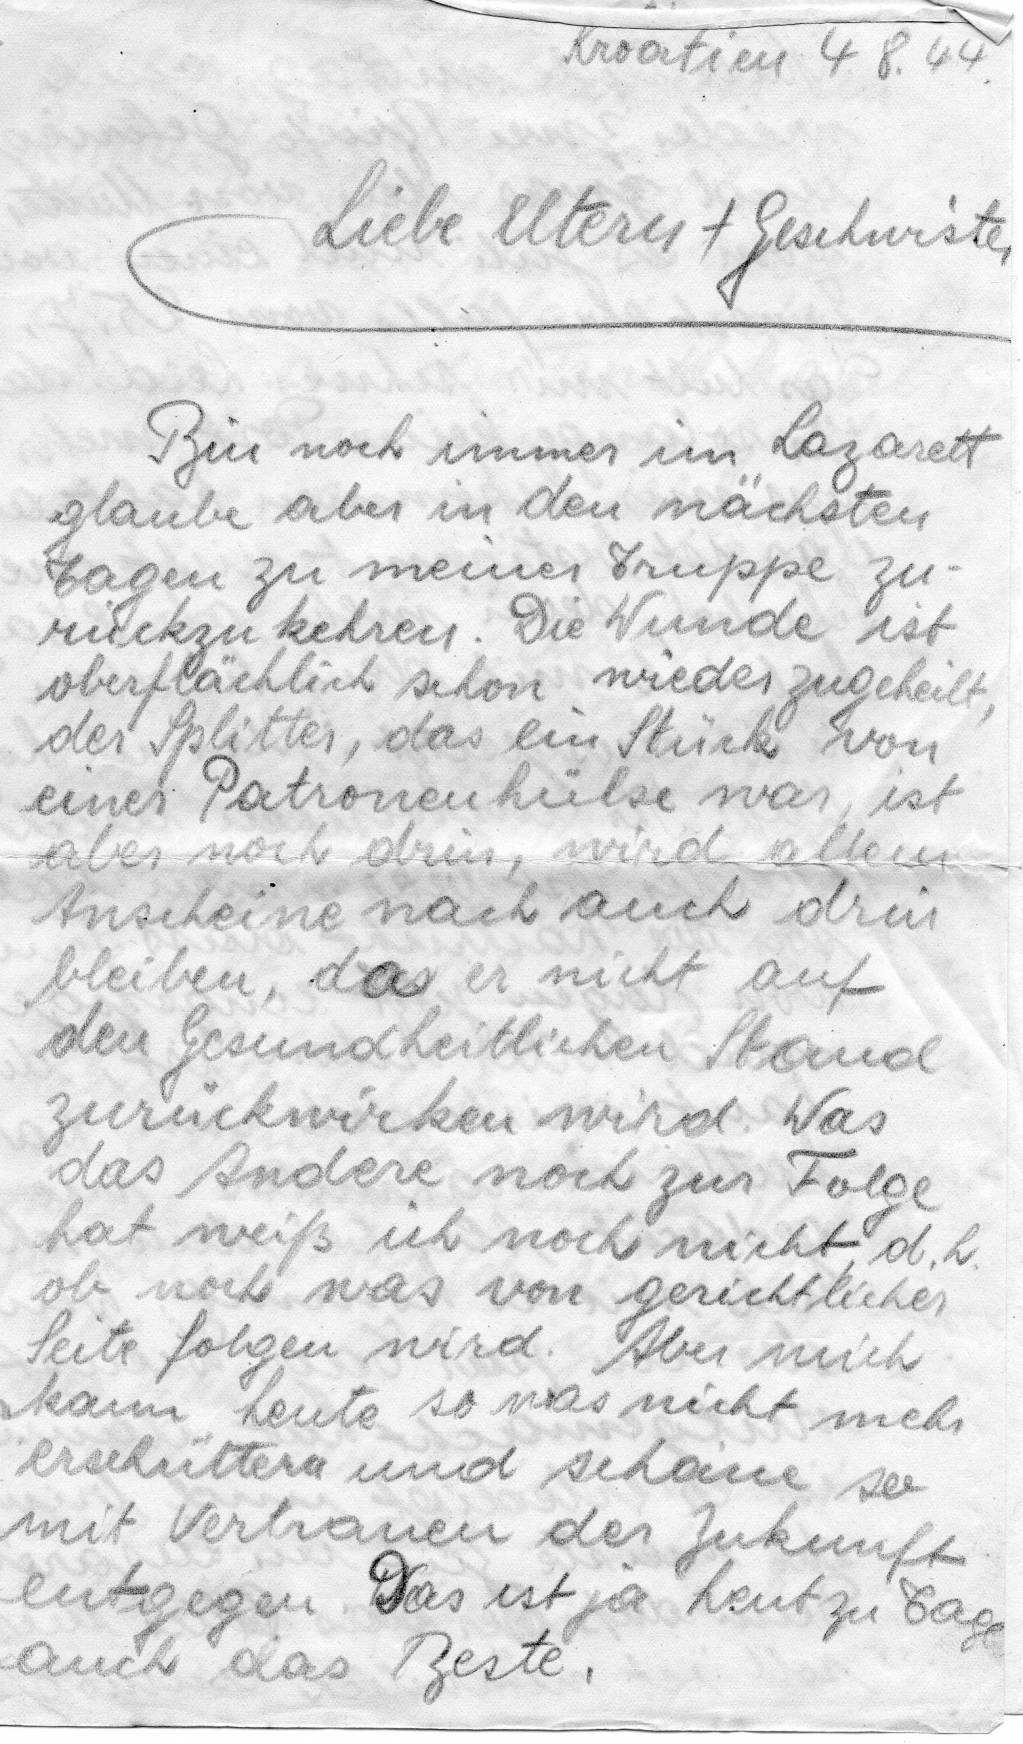 Kroatien 4.8.44.
Liebe Eltern + Geschwister
Bin noch immer im Lazarett
glaube aber in den nächsten
Tagen zu meiner Truppe zu-
rückzukehren. Die Wunde ist
oberflächlich schon wieder zugeheilt,
der Splitter, das ein Stück von
einer Patronenhülse war, ist
aber noch drin, wird allem
Anscheine nach auch drin
bleiben, das er nicht auf
den Gesundheitlichen Stand
zurückwirken wird. Was
das Andere noch zur Folge
hat weiß ich noch nicht, d.h.
ob noch was von gerichtlicher
Seite folgen wird. Aber mich
kann heute so was nicht mehr
erschüttern und schaue so
mit Vertrauen der Zukunft
entgegen. Das ist ja heut zu Tage
auch das Beste.